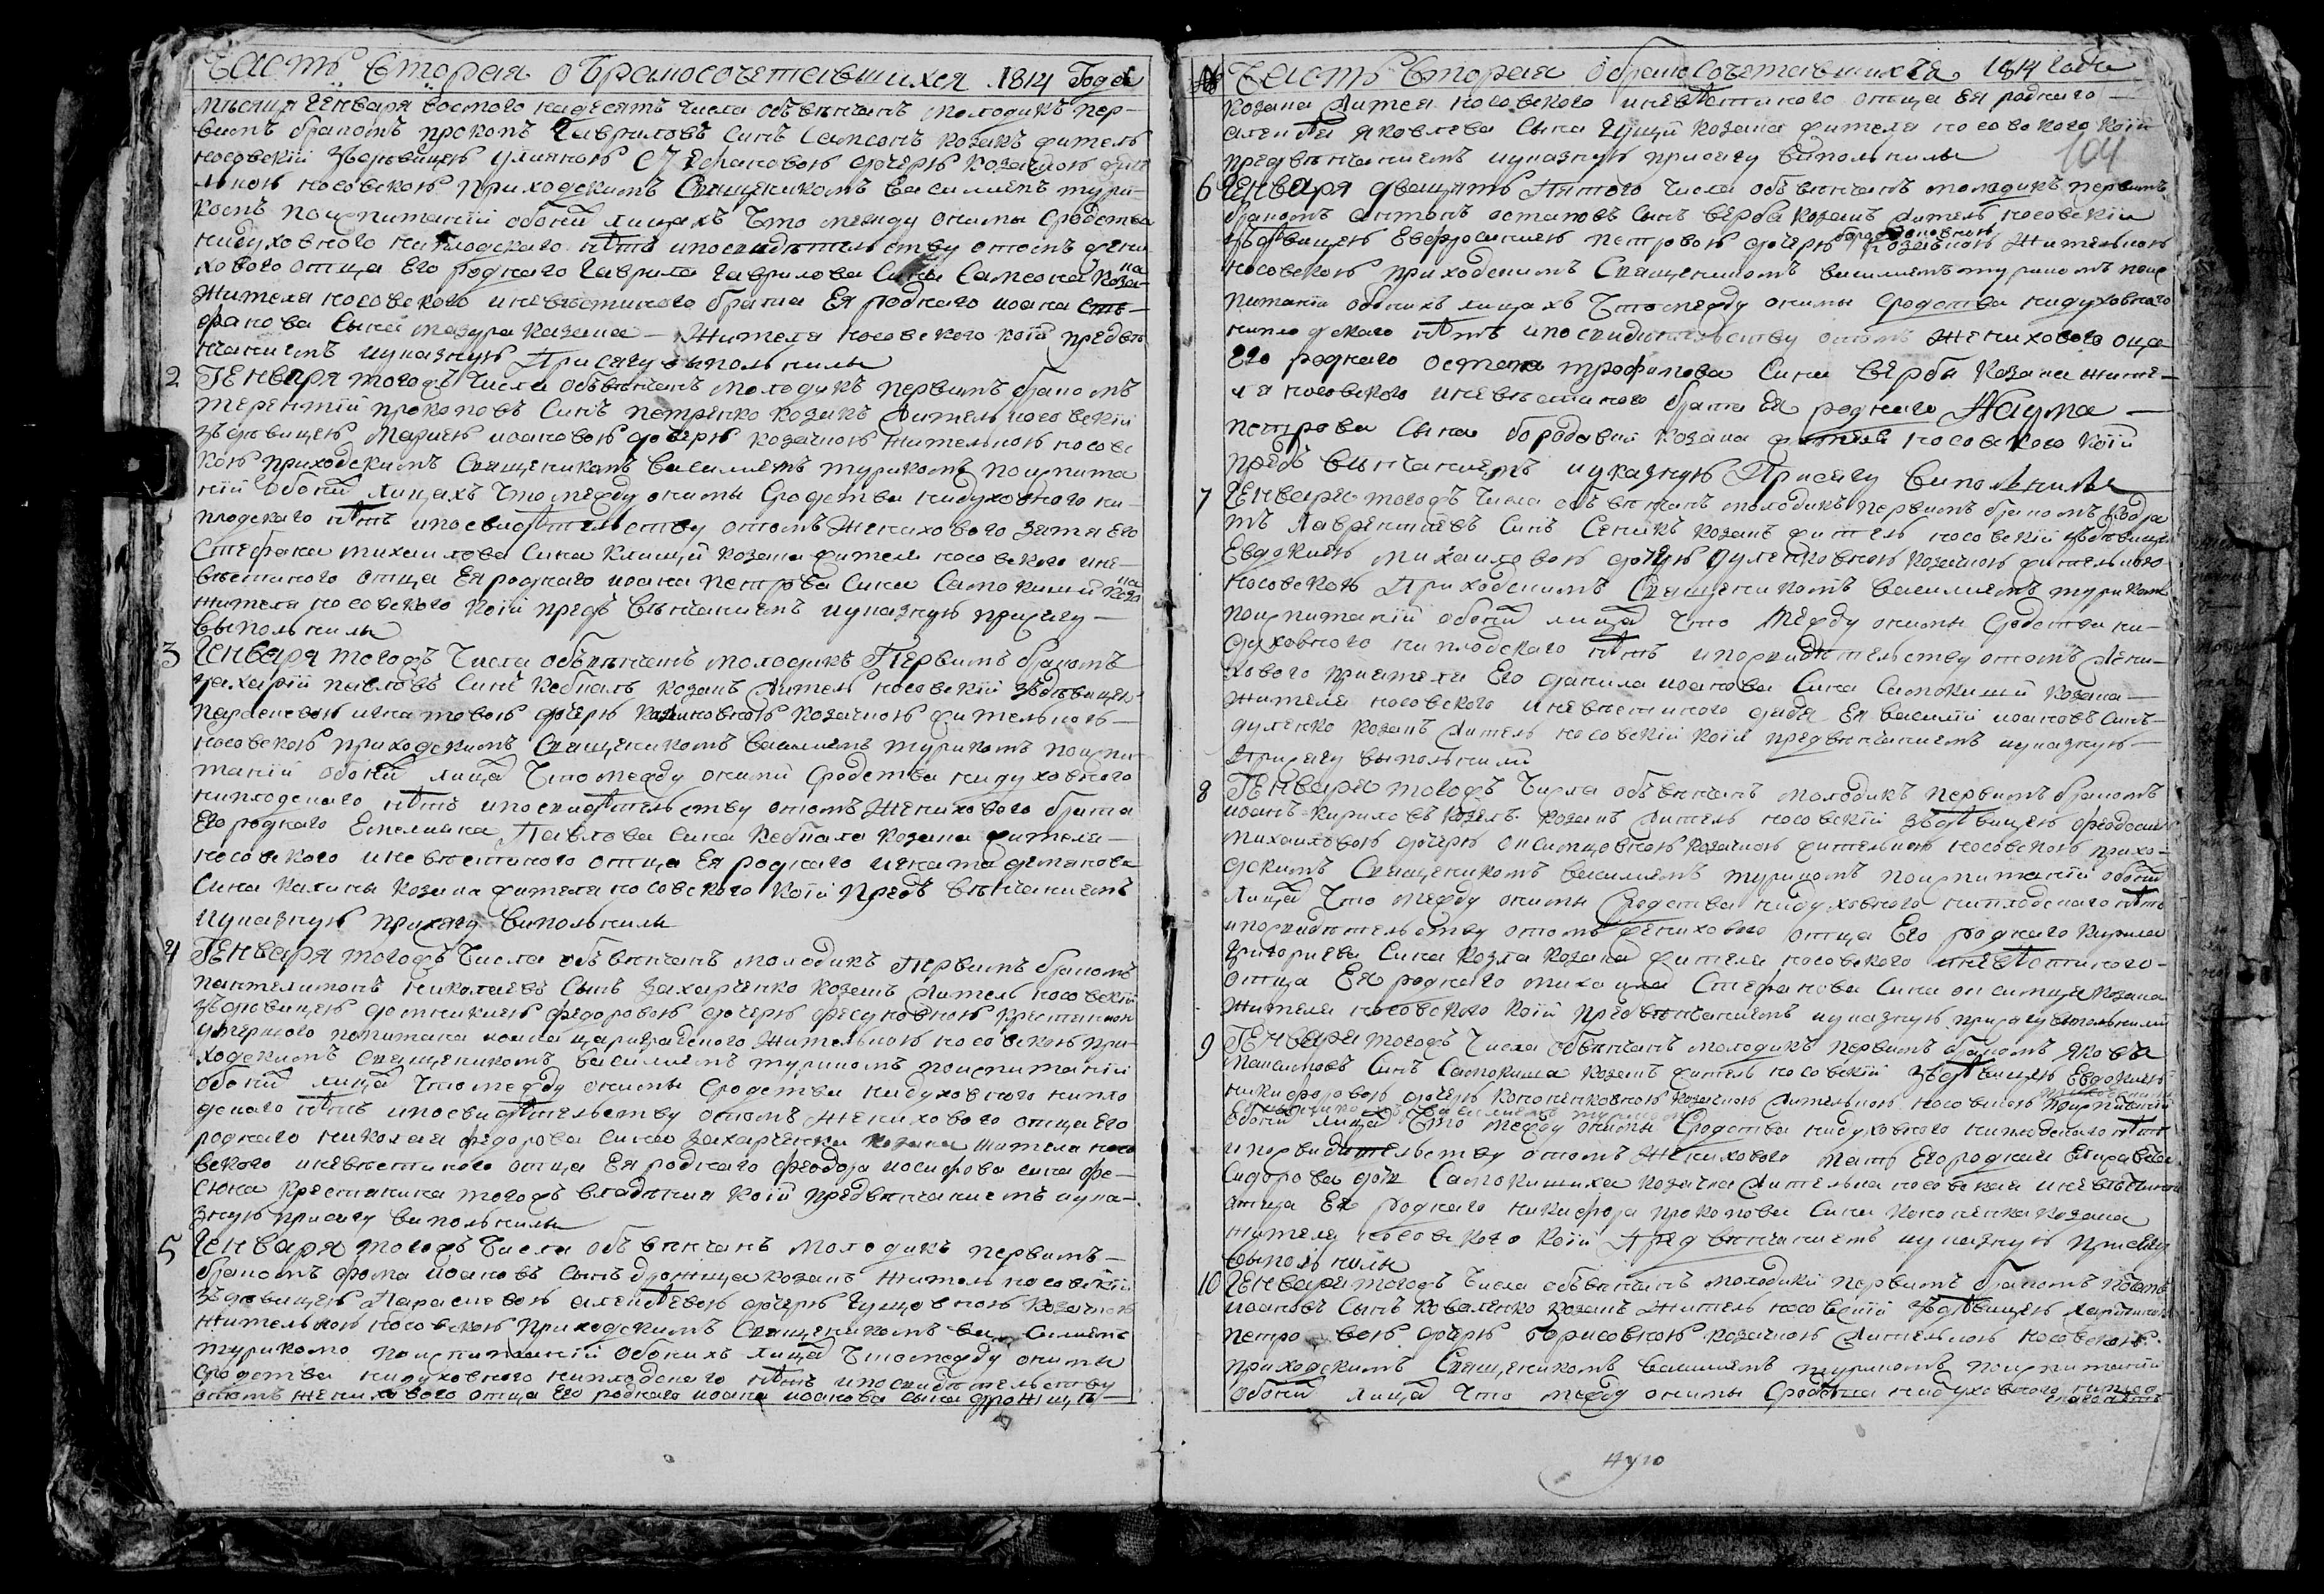 Часть вторая о бракосочетавшихся 1814 Года
Мѣсяця Генваря восмого надесять числа объвѣнчанъ молодикъ пер-
вимъ бракомъ прокопъ Гавриловъ синъ Самсонъ козакъ житель
носовскій здѣвицею улияною Стефановою дочерю козачкою жите
лькою носовскою приходскимъ Священникомъ василиемъ тури-
комъ поиспитаніи обоий лицахъ что между оними сродства
нидуховного ниплодского нѣтъ ипосвидѣтельству отомъ жени
хового отца Его родного Гаврила Гаврилова Сина Самсона коза-
ка
жителя носовского иневѣстиного брата Ея родного иоана Сте-
фанова Сына мазура казака — жителя носовского кои предвѣ
нчаниемъ иуказную Присягу выполнили
2 Генваря тогожъ Числа объвѣнчанъ молодикъ первимъ бракомъ
терентій прокоповъ Синъ петренко козакъ житель носовскій
здѣвицею Мариею иоановою дочерю козачкою жителькою носовс
кою приходскимъ Священикомъ василиемъ турикомъ поиспита
ніи обоий лицахъ что между оними Сродства нидуховного ни-
плодского нѣтъ ипосвидѣтельству отомъ женихового зятя Его
Стефана михаилова Сина Клищй козака жителя носовского ине-
вѣстиного отца Ея родного иоана петрова Сина Самокиший коза
ка
жителя носовского коій предъ вѣнчаниемъ иуказную присягу —
выполнили
3 Генваря тогожъ Числа объвѣнчанъ молодикъ Первимъ бракомъ
захарій павловъ Синъ кебкалъ козакъ житель носовскій здѣвицею
параскевою игнатовою дочерю калиновною козачкою жителькою —
носовскою приходскимъ Священикомъ василиемъ турикомъ поиспи-
таніи обоий лицахъ Что между оними Сродства нидуховного
ниплодского нѣтъ ипосвидѣтельству отомъ Женихового брата
Его родного Емелиана Павлова сина Кебкала козака жителя —
носовского иневѣстиного отца Ея родного игната демянова
Сина калины козака жителя носовского коій Предъ вѣнчаниемъ
иуказную присягу виполнили
4 Генваря тогожъ Числа объвѣнчанъ молодикъ Первимъ бракомъ
пантелимонъ николаевъ Сынъ Захарченко козакъ житель носовскій
здѣвицею домникиею федоровою дочерю фесуновною крестянкою
умершого капитана иоана цариградского жителькою носовскою при-
ходскимъ священикомъ василиемъ турикомъ поиспитаніи
обоий лицахъ что между оними сродства нидуховного нипло
дского нѣтъ ипосвидѣтельству отомъ женихового отца Его
родного николая федорова сина захарченка козака жителя носо
вского иневѣстиного отца Ея родного феодора иосифова сина фе-
сюна крестянина тогожъ владения коій предвѣнчаниемъ иука-
зную присягу виполнили
5 Генваря тогожъ Числа объвѣнчанъ молодикъ первимъ —
бракомъ фома иоановъ сынъ дрожица козакъ житель носовскій
здѣвицею Параскевою алексѣевою дочерю Гущовною козачкою
жителькою носовскою приходскимъ Священикомъ василиемъ
турикомъ поиспитаніи обоихъ лицахъ что между оними
сродства нидуховного ниплодского нѣтъ ипосвидѣтельству
отомъ женихового отца Его родного иоана иоанова сына дрожици —
№ Часть вторая о бракосочетавшихся 1814 Года
козака жителя носовского иневѣстиного отца Ея родного —
алексѣя Яковлева Сына Гущй козака жителя носовского коій
предвѣнчаниемъ иуказную присягу виполнили
104
6 Генваря двацять Пятого Числа объвѣнчанъ молодикъ первимъ
бракомъ антонъ остаповъ Сынъ верба козакъ житель носовскій
здѣвицею Евфросиниею петровою дочерю козачкою жителькою
бородавковною
носовскою приходскимъ Священикомъ василиемъ турикомъ поис
питаніи обоихъ лицахъ Что между оними Сродства нидуховного
ниплодского нѣтъ ипосвидетельству отомъ Женихового отца
Его родного остапа трофимова Сина вербы козака жите-
ля носовского иневѣстиного брата Ея родного Наума —
петрова Сына бородавки козака жителя носовского коій
предъ вѣнчаниемъ иуказную Присягу виполнили
7 Генваря тогожъ Числа объвѣнчанъ молодикъ первимъ бракомъ
Лаврентиевъ Синъ Сеникъ козакъ житель носовскій здѣвицею
Евдокиею михаиловою дочерю дуленковною козачкою жителькою
носовскою Приходскимъ Священикомъ василиемъ турикомъ
поиспитаніи обоий лицахъ Что Между оними Сродства ни-
духовного ниплодского нѣтъ ипосвидѣтельству отомъ жени-
хового приятеля Его данила иоанова Сина Самокиший козака —
жителя носовского иневѣстиного дядя Ея василій иоановъ синъ —
дуленко козакъ житель носовскій коій предвѣнчаниемъ иуказную —
присягу выполнили
8 Генваря тогожъ Числа объвѣнчанъ молодикъ первимъ бракомъ
иоанъ кириловъ козелъ козакъ житель носовскій здѣвицею феодосиею
михаиловою дочерю онисимцовною козачкою жителькою носовскою прихо-
дскимъ Священикомъ василиемъ турикомъ поиспитаніи обоий
лицахъ Что между оними Сродства нидуховного ниплодского нѣтъ
ипосвидѣтельству отомъ женихового отца Его родного кирила
григориева Сина козла козака жителя носовского иневѣстиного —
отца Ея родного михаила Стефанова Сина онисимця козака
жителя носовского коій предвѣнчаниемъ иуказную присягу виполнили
9 Генваря тогожъ Числа объвѣнчанъ молодикъ первимъ бракомъ Яковъ
максимовъ Синъ Самокиша козакъ житель носовскій здѣвицею Евдокиею
никифоровою дочерю кононенковною козачкою жителькою носовскою поиспитаніи
священикомъ василиемъ турикомъ
обоий лицахъ Что между оними Сродства нидуховного ниплодского нѣтъ
ипосвидѣтельству отомъ женихового мать Его родная
Сидорова дочь Самокишиха козачка жителька носовская иневѣстиного
отца Ея родного никифора прокопова Сина кононенка козака
жителя носовского коій Предвѣнчаниемъ иуказную присягу
выполнили
10 Генваря тогожъ Числа объвѣнчанъ молодикъ первимъ бракомъ
иоановъ Сынъ коваленко козакъ житель носовскій здѣвицею
петровою дочерю борисовною козачкою жителькою носовскою
приходскимъ Священикомъ василиемъ турикомъ поиспитаніи
обоий лицахъ Что между оними Сродства нидуховного ниплод
ского нѣтъ